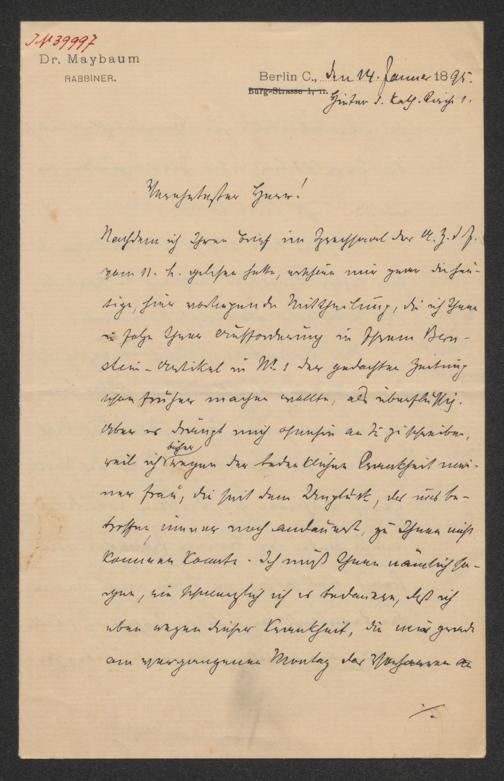 J.N 39997
Dr. Maybaum
RABBINER.
Berlin C., den 14. Januar 1895.
Burg-Strasse 1, II.
Hinter d. kath. Kirche 1.
Verehrtester Herr!
Nachdem ich Ihren Brief im Sprechsaal der A. Z. d. J.
vom 11. h. gelesen hatte, erschien mir zwar die heu-
tige, hier vorliegende Mittheilung, die ich Ihnen
in Folge Ihrer Aufforderung in Ihrem Bern-
stein-Artikel in No. 1 der gedachten Zeitung
schon früher machen wollte, als überflüssig.
Aber es drängt mich ohnehin an Sie zu schreiben,
weil ich bisher wegen der bedenklichen Krankheit mei-
ner Frau, die seit dem Unglück, das uns be-
troffen, immer noch andauert, zu Ihnen nicht
kommen konnte. Ich muß Ihnen nämlich sa-
gen, wie schmerzlich ich es bedauere, daß ich
eben wegen dieser Krankheit, die mir gerade
am vergangenen Montag das
./.